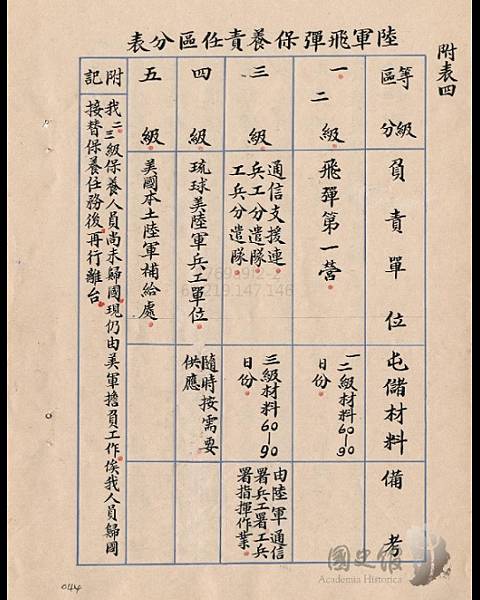 附表四
陸軍飛彈保養責任區分表
等級
區分
負責單位
屯儲材料
備考
一二級
飛彈第一營
一二級材料60—90
日份
三級
通信支援連
兵工分遣隊
工兵分遣隊
三級材料60—90
日份
由陸軍通信
署兵工署工兵
署指揮作業
四級
琉球美陸軍兵工單位
隨時按需要
供應
五級
美國本土陸軍補給處
附記
我二三級保養人員尚未歸國現仍由美軍擔負工作俟我人員歸國
接替保養任務後再行離台
044
國史館
Academia Historica